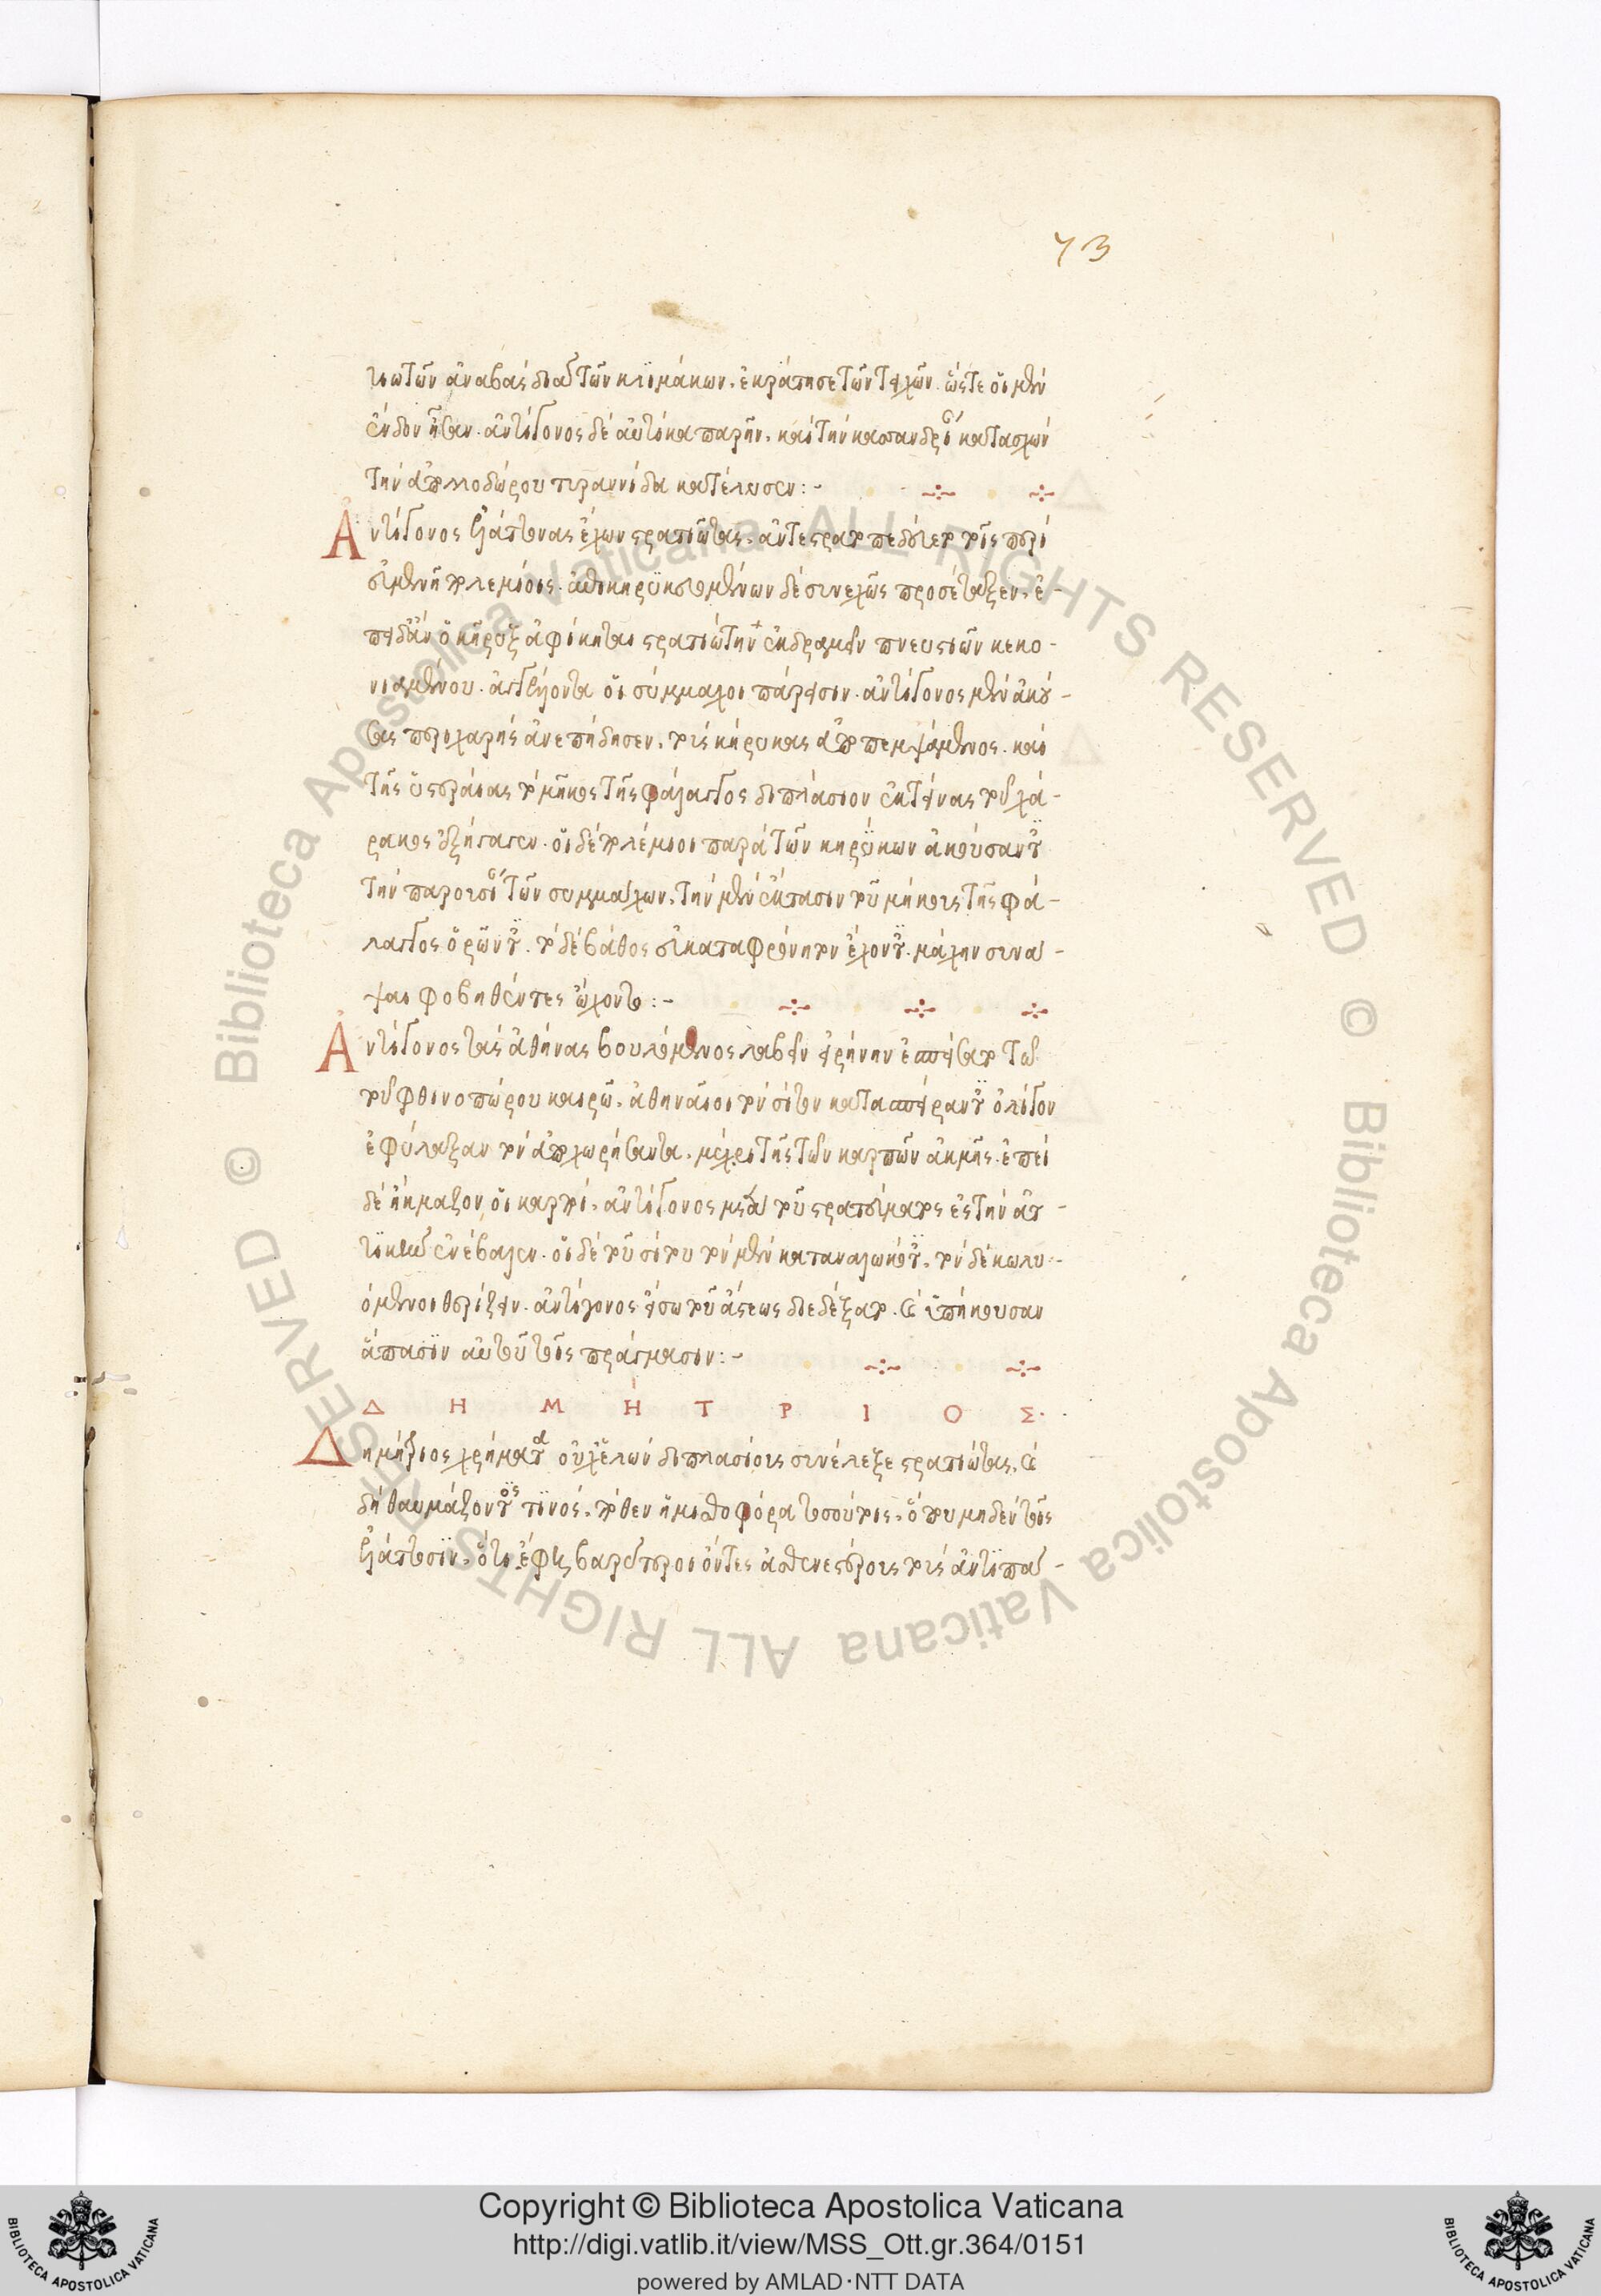 73
τιωτῶν ἀναβὰς διὰ τῶν κλιμάκων. ἐκράτησε τῶν τειχῶν. ὥστε οἱ μὲν
ἔνδον ἦσαν. ἀντίγονος δὲ αὐτίκα παρῆν. καὶ τὴν κασανδρείαν κατασχὼν
τὴν ἀπολλοδώρου τυραννίδα κατέλυσεν:-
Ἀντίγονος ἐλάττονας ἔχων στρατιώτας. ἀντεστρατοπεδεύετο τοῖς περὶ
εὐμενῆ πολεμίοις. ἐπικηρυκευομένων δὲ συνεχῶς προσέταξεν. ἐ-
πειδὰν ὁ κῆρυξ ἀφίκηται στρατιώτην ἐκδραμεῖν πνευστιῶν κεκο-
νιαμένου. ἀγγέλλοντα οἱ σύμμαχοι πάρεισιν. ἀντίγονος μὲν ἀκού-
σας περιχαρὴς ἀνεπήδησεν. τοὺς κήρυκας ἀποπεμψάμενος. καὶ
τῆς ὑστεραίας τὸ μῆκος τῆς φάλαγγος διπλάσιον ἐκτείνας τοῦ χά-
ρακος ἐξήγαγεν. οἱ δὲ πολέμιοι παρὰ τῶν κηρύκων ἀκούσαντες
τὴν παρουσίαν τῶν συμμάχων. τὴν μὲν ἔκτασιν τοῦ μήκους τῆς φά-
λαγγος ὁρῶντες. τὸ δὲ βάθος εὐκαταφρόνητον ἔχοντες. μάχην συνά-
ψαι φοβηθέντες ᾤχοντο:-
Ἀντίγονος τὰς ἀθήνας βουλόμενος λαβεῖν εἰρήνην ἐσπείσατο τοῦ
τοῦ φθινοπώρου καιρῷ. ἀθηναῖοι τὸν σῖτον κατασπείραντες ὀλίγον
ἐφύλαξαν τὸν ἀποχωρήσαντα. μέχρι τῆς τῶν καρπῶν ἀκμῆς. ἐπεὶ
δὲ ἤκμαζον οἱ καρποὶ. ἀντίγονος μετὰ τοῦ στρατεύματος ἐς τὴν ἀτ-
τικὴν ἐνέβαλεν. οἱ δὲ τοῦ σίτου τὸν μὲν καταναλωκότες. τὸν δὲ κωλυ-
όμενοι θερίζειν. ἀντίγονον εἴσω τοῦ ἄστεως διεδέξατο. καὶ ὑπήκουσαν
ἅπασιν αὐτοῦ τοῖς πράγμασιν:-
Δ Η Μ Η Τ Ρ Ι Ο Σ.
Δημήτριος χρήματα οὐκ ἔχων διπλασίους συνέλεξε στρατιώτας. καὶ
δὴ θαυμάζοντός τινος. πόθεν ἡ μισθοφόρα τοσούτοις. ὅπου μηδὲν τοῖς
ἐλάττοσιν. ὅτι ἔφη βαρύτεροι ὄντες ἀσθενεστέρους τοὺς ἀντιπά-
Copyright © Biblioteca Apostolica Vaticana
http://digi.vatlib.it/view/MSS_Ott.gr.364/0151
powered by AMLAD·NTT DATA